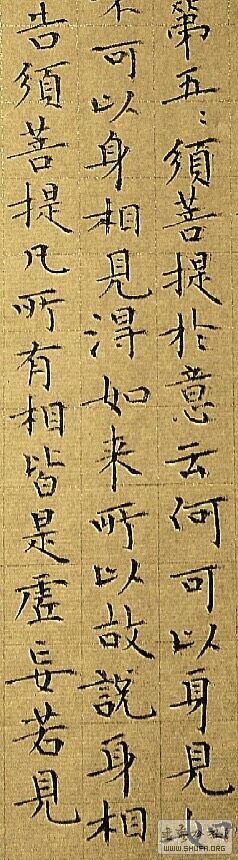 第五：須菩提於意云何可以身見
不可以身相見得如来所以故説身相
告須菩提凡所有相皆是虛妄若見
WWW.SHUFA.ORG